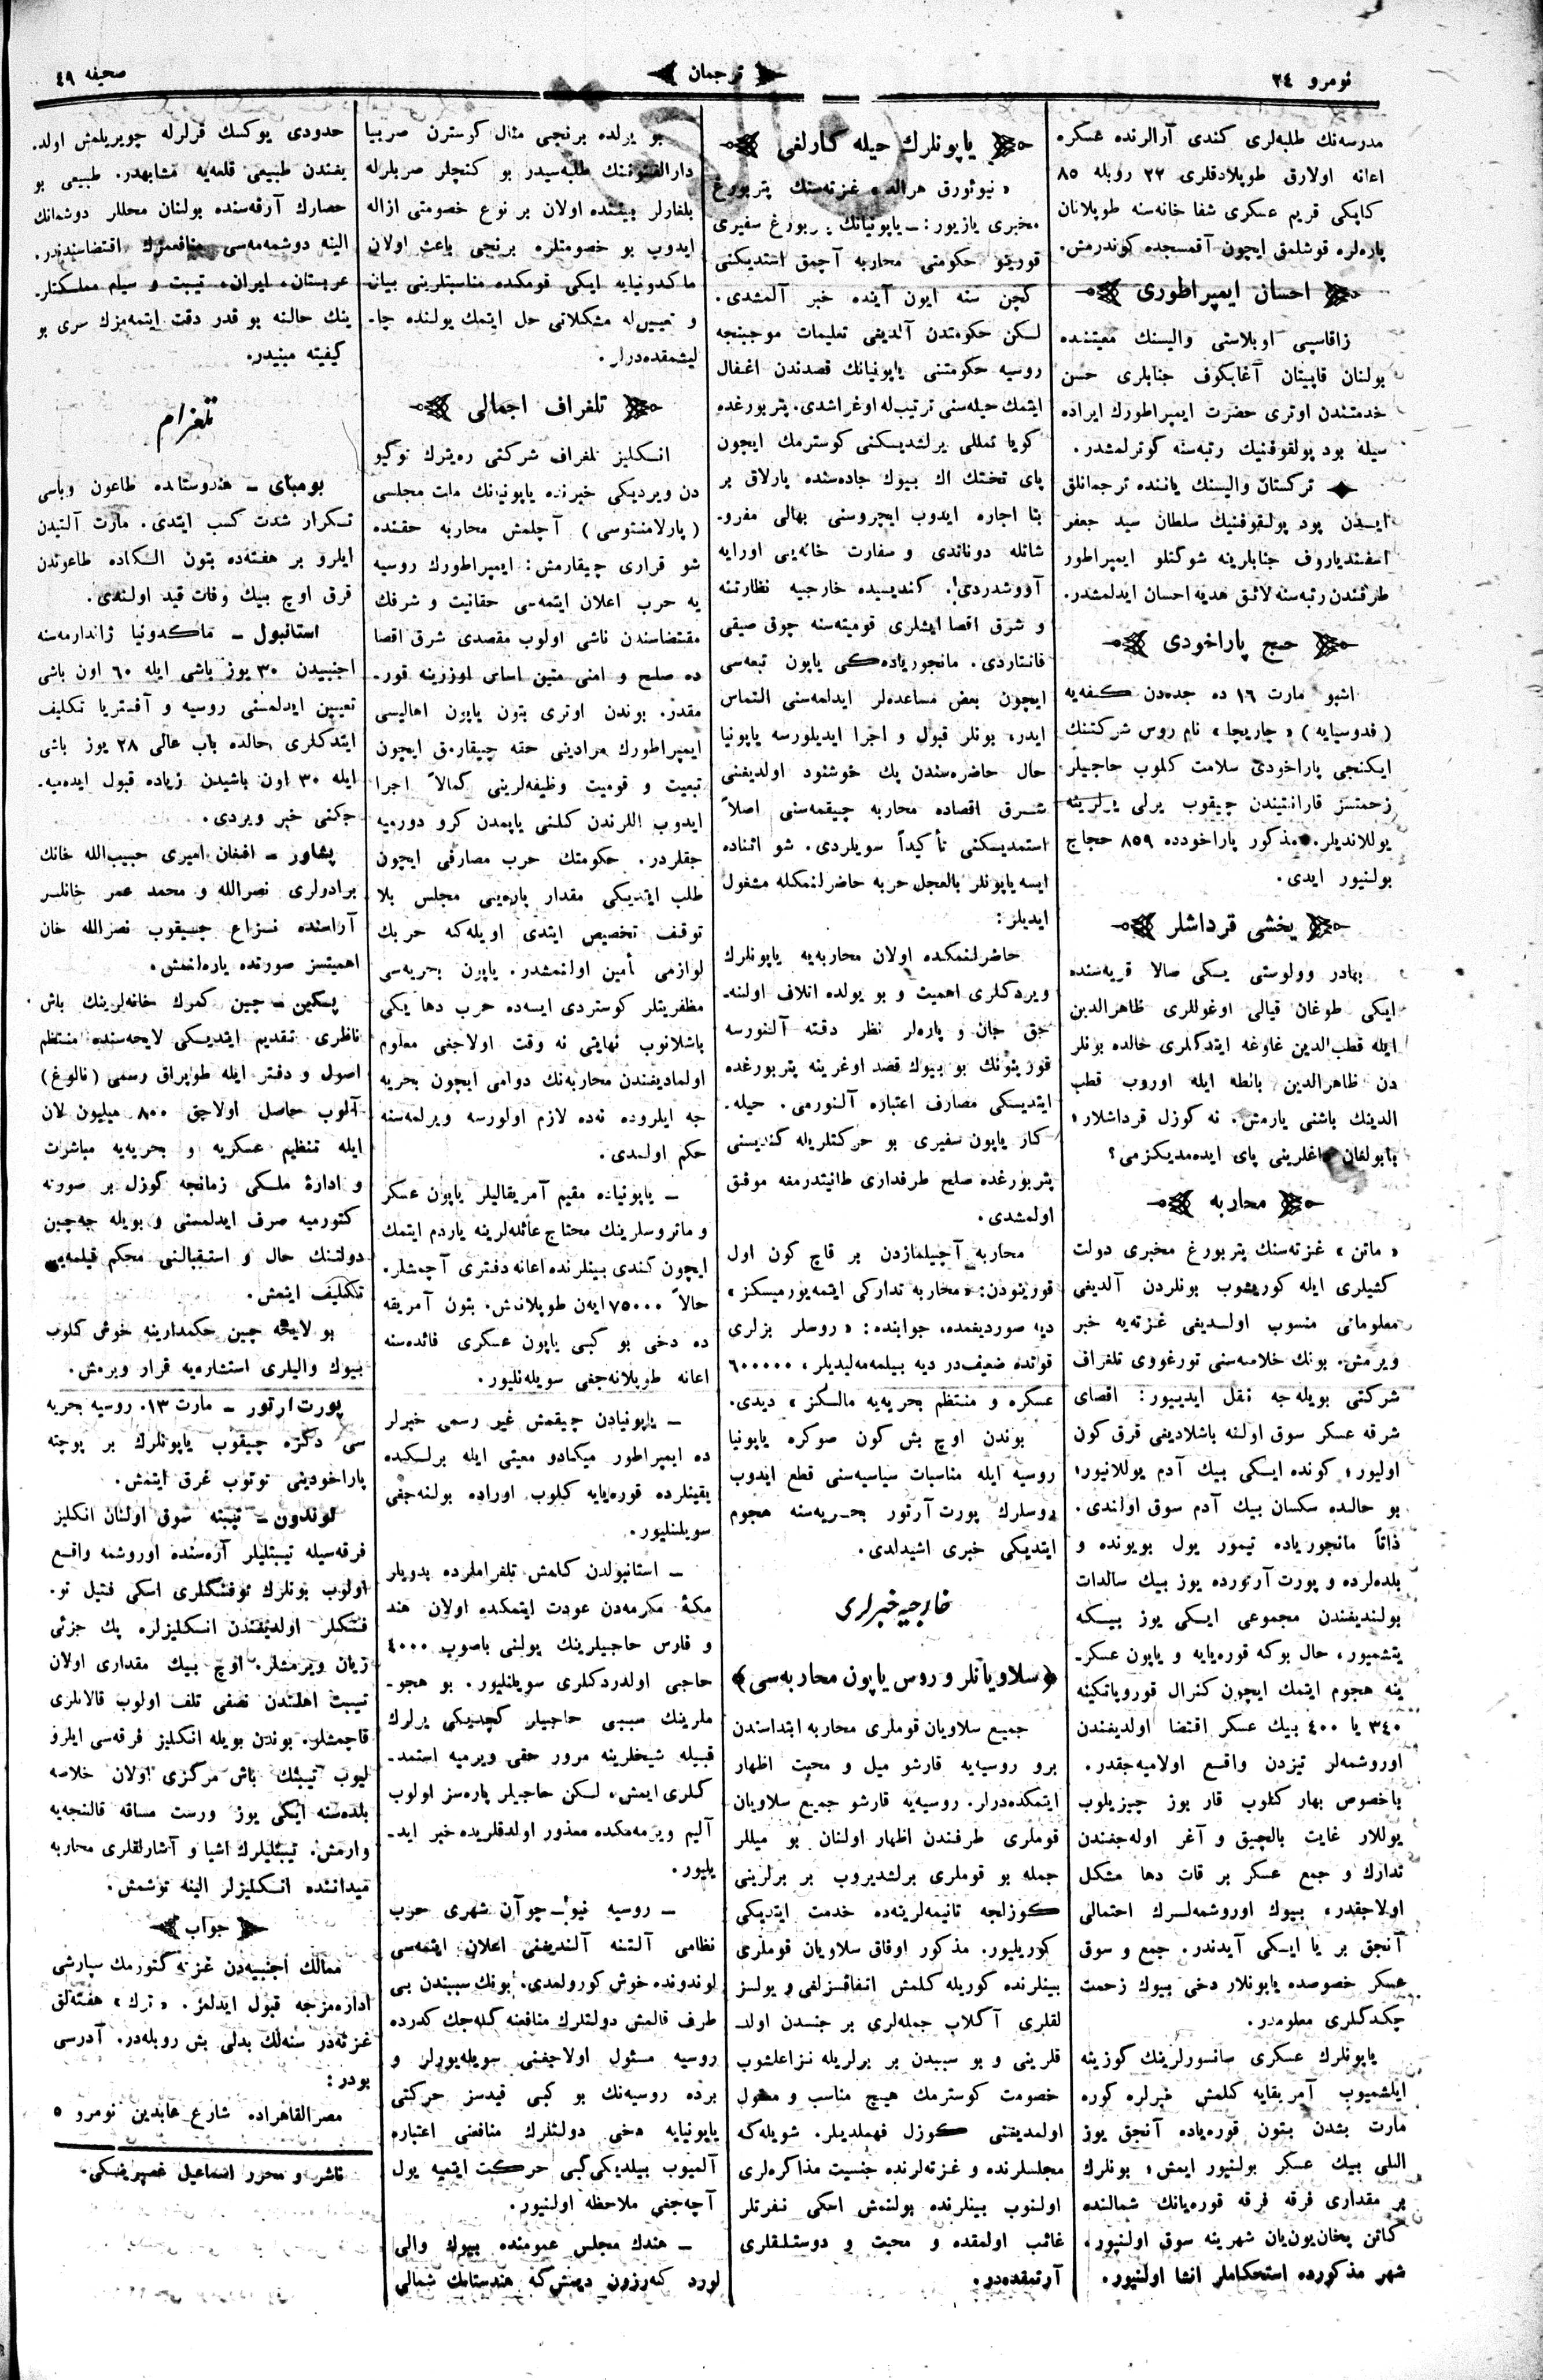 نومرو ٢٤
ترجمان
صحيفه ٤٩
مدرسه‌نك طلبه‌لری كندی آرالرنده عسكره
اعانه اولارق طوپلادقلری ٢٢ روبله ٨٥
كاپكی قريم عسكری شفا خانه‌سنه طوپلانان
پاره‌لره قوشلمق ايچون آقمسجده كوندرمش.
احسان ايمپراطوری
زاقاسپی اوبلاستی واليسنك معيتنده
بولنان قاپيتان آغابكوف جنابلری حسن
خدمتندن اوتری حضرت ايمپراطورك ايراده
سيله پود پولقوفنيك رتبه‌سنه كوترلمشدر.
تركستان واليسنك ياننده ترجمانلق
ايدن پود پولقوفنيك سلطان سيد جعفر
اسفندياروف جنابلرينه شوكتلو ايمپراطور
طرفندن رتبه‌سنه لائق هديه احسان ايدلمشدر.
حج پاراخودی
اشبو مارت ١٦ ده جده‌دن كفه‌يه
(فدوسيايه) «چاريچا» نام روس شركتنك
ايكنجی پاراخودی سلامت كلوب حاجيلر
زحمتسز قارانتيندن چيقوب يرلی يرلرينه
يوللانديلر. مذكور پاراخودده ٨٥٩ حجاج
بولنيور ايدی.
يخشی قرداشلر
بهادر وولوستی يسكی صالا قريه‌سنده
ايكی طوغان قيالی اوغوللری ظاهرالدين
ايله قطب‌الدين غاوغه ايتدكلری حالده بونلر
دن ظاهرالدين بالطه ايله اوروب قطب
الدينك باشنی يارمش. نه كوزل قرداشلار!
پای ايده‌مديكزمی؟
محاربه
«ماتن» غزته‌سنك پتربورغ مخبری دولت
كشيلری ايله كوريشوب بونلردن آلديغی
معلوماتی منسوب اولديغی غزته‌يه خبر
ويرمش. بونك خلاصه‌سنی تورغووی تلغراف
شركتی بويله‌جه نقل ايديیور: اقصای
شرقه عسكر سوق اولنه باشلاديغی قرق كون
اوليور؛ كونده ايكی بيك آدم يوللانيور؛
بو حالده سكسان بيك آدم سوق اولندی.
ذاتاً مانجورياده تيمور يول بويونده و
بلده‌لرده و پورت آرتورده يوز بيك سالدات
بولنديغندن مجموعی ايكی يوز بيكه
يتشميور، حال بوكه قوره‌يايه و ياپون عسكر-
ينه هجوم ايتمك ايچون كنرال قوروپاتكينه
٣٤٠ يا ٤٠٠ بيك عسكر اقتضا اولديغندن
اوروشمه‌لر تيزدن واقع اولاميه‌جقدر.
باخصوص بهار كلوب قار بوز چيزيلوب
يوللار غايت بالچيق و آغر اوله‌جغندن
تدارك و جمع عسكر بر قات دها مشكل
اولاجقدر، بيوك اوروشمه‌لرك احتمالی
آنجق بر يا ايكی آيدندر. جمع و سوق
عسكر خصوصده ياپونلار دخی بيوك زحمت
چكدكلری معلومدر.
ياپونلرك عسكری سانسورلرينك كوزينه
ايلشميوب آمريقايه كلمش خبرلره كوره
مارت بشدن بتون قوره‌ياده آنجق يوز
اللی بيك عسكر بولنيور ايمش؛ بونلرك
بر مقداری فرقه فرقه قوره‌يانك شمالنده
كائن پخان‌يون‌يان شهرينه سوق اولنيور.
شهر مذكورده استحكاملر انشا اولنيور.
ياپونلرك حيله كارلغی
«نيوئورق هرالد» غزته‌سنك پتربورغ
مخبری يازيور: ــ ياپونيانك پتربورغ سفيری
قورينو حكومتی محاربه آچمق استديكنی
كچن سنه ايون آينده خبر آلمشدی.
لكن حكومتدن آلديغی تعليمات موجبنجه
روسيه حكومتنی ياپونيانك قصدندن اغفال
ايتمك حيله‌سنی ترتيب‌له اوغراشدی. پتربورغده
كويا تمللی يرلشديكنی كوسترمك ايچون
پای تختك اك بيوك جاده‌سنده پارلاق بر
بنا اجاره ايدوب ايچروسنی بهالی مفرو-
شاتله دوناندی و سفارت خانه‌یی اورايه
آووشدردی!. كنديسيده خارجيه نظارتنه
و شرق اقصا ايشلری قوميته‌سنه چوق صيقی
قاتناردی. مانجورياده‌كی ياپون تبعه‌سی
ايچون بعض مساعده‌لر ايدلمه‌سنی التماس
ايدر، بونلر قبول و اجرا ايديلورسه ياپونيا
حال حاضره‌سندن پك خوشنود اولديغنی
شرق اقصاده محاربه چيقمه‌سنی اصلاً
استمديكنی تأكيداً سويلردی. شو اثناده
ايسه ياپونلر بالعجل حربه حاضرلنمكله مشغول
ايديلر:
حاضرلنمكده اولان محاربه‌يه ياپونلرك
ويردكلری اهميت و بو يولده اتلاف اولنه-
جق جان و پاره‌لر نظر دقته آلنورسه
قورينونك بو بيوك قصد اوغرينه پتربورغده
ايتديكی مصارف اعتباره آلنورمی. حيله-
كار ياپون سفيری بو حركتلريله كنديسنی
پتربورغده صلح طرفداری طانيتدرمغه موفق
اولمشدی.
محاربه آچيلمازدن بر قاچ كون اول
قورينودن: «محاربه تداركی ايتمه‌يورميسكز»
ديه صورديغمده، جوابنده: «روسلر بزلری
قوتده ضعيف‌در ديه بيلمه‌مه‌ليديلر، ٦٠٠٠٠٠
عسكره و منتظم بحريه‌يه مالكز» ديدی.
بوندن اوچ بش كون صوكره ياپونيا
روسيه ايله مناسبات سياسيه‌سنی قطع ايدوب
روسلرك پورت آرتور بحريه‌سنه هجوم
ايتديكی خبری اشيدلدی.
خارجيه خبرلری
﴿سلاويانلر و روس ياپون محاربه‌سی﴾
جميع سلاويان قوملری محاربه ابتداسندن
برو روسيه‌يه قارشو ميل و محبت اظهار
ايتمكده‌درلر. روسيه‌يه قارشو جميع سلاويان
قوملری طرفندن اظهار اولنان بو ميللر
جمله بو قوملری برلشديروب بر برلرينی
كوزلجه تانيمه‌لرينه‌ده خدمت ايتديكی
كوريليور. مذكور اوفاق سلاويان قوملری
بينلرنده كوريله كلمش اتفاقسزلغی و يولسز
لقلری آكلاب جمله‌لری بر جنسدن اولد-
قلرينی و بو سببدن بر برلريله نزاعلشوب
خصومت كوسترمك هيچ مناسب و معقول
اولمديغنی كوزل فهملديلر. شويله‌كه
مجلسلرنده و غزته‌لرنده جنسيت مذاكره‌لری
اولنوب بينلرنده بولنمش اسكی نفرتلر
غائب اولمقده و محبت و دوستلقلری
آرتمقده‌در.
بو يرلده برنجی مثال كوسترن صربيا
دارالفنوننك طلبه‌سيدر بو كنجلر صربلرله
بلغارلر بيننده اولان بر نوع خصومتی ازاله
ايدوب بو خصومتلره برنجی باعث اولان
ماكدونيايه ايكی قومكده مناسبتلرينی بيان
و تعيين‌له مشكلاتی حل ايتمك يولنده چا-
ليشمقده‌درلر.
تلغراف اجمالی
انكليز تلغراف شركتی ره‌يترك توكيو
دن ويرديكی خبرنده ياپونيه‌نك ملت مجلسی
(پارلامنتوسی) آچلمش محاربه حقنده
شو قراری چيقارمش: ايمپراطورك روسيه
يه حرب اعلان ايتمه‌سی حقانيت و شرفك
مقتضاسندن ناشی اولوب مقصدی شرق اقصا
ده صلح و امنی متين اساس اوزرينه قور-
مقدر. بوندن اوتری بتون ياپون اهاليسی
ايمپراطورك مرادينی حقه چيقارمق ايچون
تبعيت و قوميت وظيفه‌لرينی كمالاً اجرا
ايدوب اللرندن كلنی ياپمدن كرو دورميه
جقلردر. حكومتك حرب مصارفی ايچون
طلب ايتديكی مقدار پاره‌یی مجلس بلا
توقف تخصيص ايتدی اويله‌كه حربك
لوازمی تأمين اولنمشدر. ياپون بحريه‌سی
مظفريتلر كوستردی ايسه‌ده حرب دها يكی
باشلانوب نهايتی نه وقت اولاجغی معلوم
اولماديغندن محاربه‌نك دوامی ايچون بحريه
جه ايلروده نه‌ده لازم اولورسه ويرلمه‌سنه
حكم اولندی.
ــ ياپونياده مقيم آمريقاليلر ياپون عسكر
و ماتروسلرينك محتاج عائله‌لرينه ياردم ايتمك
ايچون كندی بينلرنده اعانه دفتری آچمشلر.
حالاً ٧٥٠٠٠ ايه‌ن طوپلانمش. بتون آمريقه
ده دخی بو كبی ياپون عسكری فائده‌سنه
اعانه طوپلانه‌جغی سويله‌نليور.
ــ ياپونيادن چيقمش غير رسمی خبرلر
ده ايمپراطور ميكادو معيتی ايله برلكده
يقينلرده قوره‌يايه كلوب اوراده بولنه‌جغی
سويلنليور.
ــ استانبولدن كلمش تلغراملرده بدويلر
مكهٔ مكرمه‌دن عودت ايتمكده اولان هند
و فارس حاجيلرينك يولنی باصوب ٤٠٠٠
حاجی اولدردكلری سويلنليور. بو هجو-
ملرينك سببی حاجيلر كچديكی يرلرك
قبيله شيخلرينه مرور حقی ويرميه استمد-
كلری ايمش، لكن حاجيلر پاره‌سز اولوب
آليم ويرمه‌مكده معذور اولدقلريده خبر ايد-
يليور.
ــ روسيه نيو-چوآن شهری حرب
نظامی آلتنه آلنديغنی اعلان ايتمه‌سی
لوندونده خوش كورولمدی. بونك سببندن بی
طرف قالمش دولتلرك منافعنه كله‌جك كدرده
روسيه مسئول اولاجغنی سويله‌يورلر و
برده روسيه‌نك بو كبی قيدسز حركتی
ياپونيايه دخی دولتلرك منافعنی اعتباره
آلميوب بيلديكی كبی حركت ايتميه يول
آچه‌جغی ملاحظه اولنيور.
ــ هندك مجلس عمومنده بيوك والی
لورد كه‌رزون ديمش‌كه هندستانك شمالی
حدودی يوكسك قرلرله چويريلمش اولد-
يغندن طبيعی قلعه‌يه مشابهدر. طبيعی بو
حصارك آرقه‌سنده بولنان محللر دوشمانك
الينه دوشمه‌مه‌سی منافعمزك اقتضاسندندر.
عربستان، ايران، تيبت و سيام مملكتلر-
ينك حالنه بو قدر دقت ايتمه‌مزك سری بو
كيفيته مبنيدر.
تلغرام
بومبای ــ هندوستانده طاعون وباسی
تكرار شدت كسب ايتدی. مارت آلتيدن
ايلرو بر هفته‌ده بتون الكاده طاعوندن
قرق اوچ بيك وفات قيد اولندی.
استانبول ــ ماكدونيا ژاندارمه‌سنه
اجنبيدن ٣٠ يوز باشی ايله ٦٠ اون باشی
تعيين ايدلمسنی روسيه و آفستريا تكليف
ايتدكلری حالده باب عالی ٢٨ يوز باشی
ايله ٣٠ اون باشيدن زياده قبول ايده‌ميه-
جكنی خبر ويردی.
پشاور ــ افغان اميری حبيب‌الله خانك
برادرلری نصرالله و محمد عمر خانلر
آراسنده نزاع چيقوب نصرالله خان
اهميتسز صورتده ياره‌لنمش.
پكين ــ چين كمرك خانه‌لرينك باش
ناظری تقديم ايتديكی لايحه‌سنده منتظم
اصول و دفتر ايله طوپراق رسمی (نالوغ)
آلوب حاصل اولاجق ٨٠٠ ميليون لان
ايله تنظيم عسكريه و بحريه‌يه مباشرت
و ادارهٔ ملكی زمانجه كوزل بر صورته
كتورميه صرف ايدلمسنی و بويله جه‌چين
دولتنك حال و استقبالنی محكم قيلمه‌یی
تكليف ايتمش.
بو لايحه چين حكمدارينه خوش كلوب
بيوك واليلری استشاره‌يه قرار ويرمش.
پورت آرتور ــ مارت ١٣. روسيه بحريه
سی دكزه چيقوب ياپونلرك بر پوچته
پاراخودينی توتوب غرق ايتمش.
لوندون ــ تيبته سوق اولنان انكليز
فرقه‌سيله تيبتليلر آره‌سنده اوروشمه واقع
اولوب بونلرك توفنكلری اسكی فتيل تو-
فنكلر اولديغندن انكليزلره پك جزئی
زيان ويرمشلر. اوچ بيك مقداری اولان
تيبت اهلندن نصفی تلف اولوب قالانلری
قاچمشلر. بوندن بويله انكليز فرقه‌سی ايلرو
ليوب تيبتك باش مركزی اولان خلاصه
بلده‌سنه ايكی يوز ورست مسافه قالنجه‌يه
وارمش. تيبتليلرك اشيا و آغارلقلری محاربه
ميداننده انكليزلر الينه توشمش.
جواب
ممالك اجنبيه‌دن غزته كتورمك سپارشی
اداره‌مزجه قبول ايدلمز. «ترك» هفته‌لق
غزته‌در سنه‌لك بدلی بش روبله‌در. آدرسی
بودر:
مصرالقاهراده شارع عابدين نومرو ٥
ناشر و محرر اسماعيل غصپرينسكی.